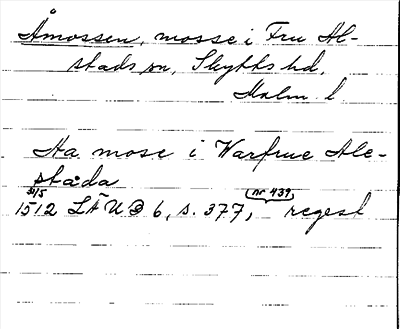 Åmossen, mosse i Fru Al-
stads sn, Skytts hd,
Malm. l.
Aa mose i Warfrue Ale-
stada
30/5
1512 LÄUB 6, s. 377, (nr 439) regest